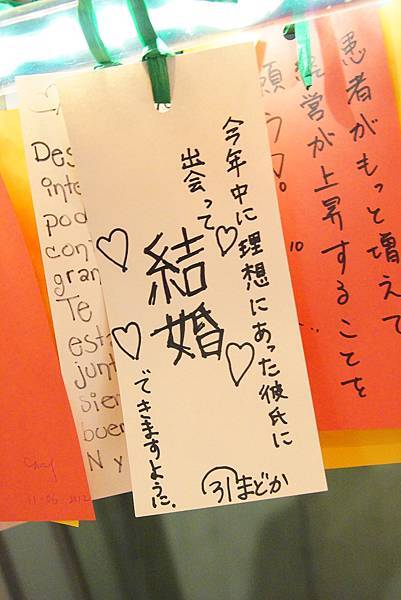 患者がもっと増えて
経営が上昇することを
願う
10
今年中に理想にあった彼氏に
出会って
結婚
できますように、
31まどか
Des
inte
pod
con
gran
Te
est
junt
sien
buen
N y